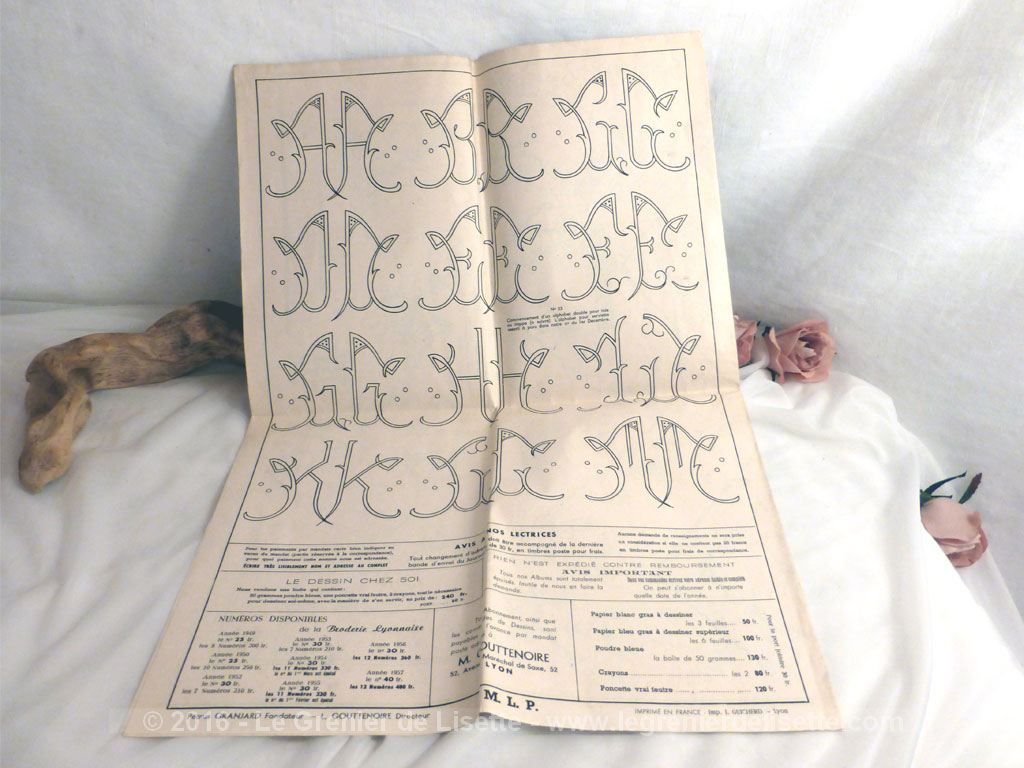 N° 23
Commencement d'un alphabet double pour taie
ou nappe (à suivre). L'alphabet pour serviette
AVIS
NOS LECTRICES
Pour les paiements par mandats carte bien indiquer au
verso du mandat (partie réservée à la correspondance),
pour quel paiement cette somme nous est adressée.
ÉCRIRE TRÈS LISIBLEMENT NOM ET ADRESSE AU COMPLET
Tout changement
doit être accompagné de la dernière
bande d'envoi du Journal
de 30 fr. en timbres poste pour frais.
Aucune demande de renseignements ne sera prise
en considération si elle ne contient pas 20 francs
en timbres poste pour frais de correspondance.
RIEN N'EST EXPÉDIÉ CONTRE REMBOURSEMENT
AVIS IMPORTANT
Tous nos Albums sont totalement
épuisés. Inutile de nous en faire la
demande.
On peut s'abonner à n'importe
quelle date de l'année.
LE DESSIN CHEZ SOI
Nous vendons une boîte qui contient :
50 grammes poudre bleue, une poncette vrai feutre, 2 crayons, tout le nécessaire
pour dessiner soi-même, avec la manière de s'en servir, au prix de : 240 fr.
PORT
NUMÉROS DISPONIBLES
de la Broderie Lyonnaise
Année 1949
le N° 25 fr.
les 8 Numéros 200 fr.
Année 1950
le N° 25 fr.
les 10 Numéros 250 fr.
Année 1952
le N° 30 fr.
les 7 Numéros 210 fr.
Année 1953
le N° 30 fr.
les 7 Numéros 210 fr.
Année 1954
le N° 30 fr.
les 11 Numéros 330 fr.
le N° du 1er Mars est épuisé
Année 1955
le N° 30 fr.
les 11 Numéros 330 fr.
Année 1956
le N° 30 fr.
les 12 Numéros 360 fr.
Année 1957
le N° 40 fr.
les 12 Numéros 480 fr.
Abonnement, ainsi que
de Dessins, sont
l'avance par mandat
M.
GOUTTENOIRE
52, Avenue
Maréchal de Saxe, 52
LYON
Papier blanc gras à dessiner
les 3 feuilles.... 50 fr.
Papier bleu gras à dessiner supérieur
les 6 feuilles... 100 fr.
Poudre bleue
la boîte de 50 grammes.... 130 fr.
Crayons les 2 80 fr.
Poncette vrai feutre 120 fr.
Pour le port joindre 30 fr.
GRANJARD Fondateur
GOUTTENOIRE Directeur
M. L. P.
IMPRIMÉ EN FRANCE - Imp. L. GUICHERD - Lyon
© 2016 - Le Grenier de Lisette - www.legrenierdelisette.com